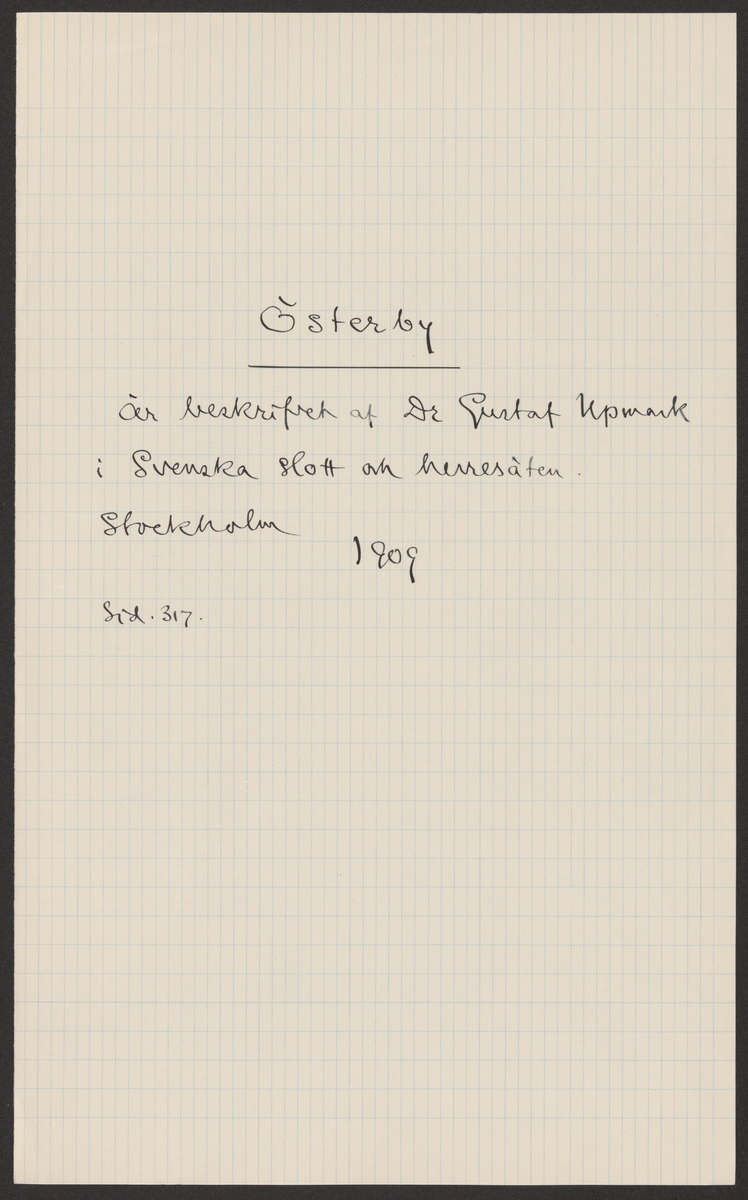 Österby
är beskrifvet af Dr Gustaf Upmark
i Svenska slott och herresäten.
Stockholm
1909
Sid. 317.